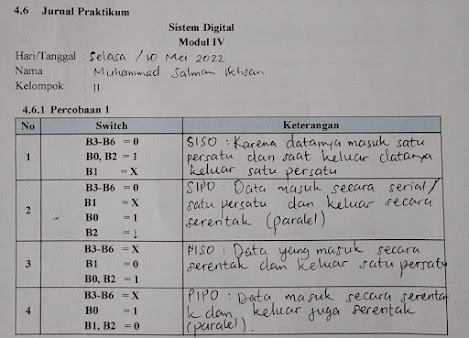 4.6 Jurnal Praktikum
Sistem Digital
Modul IV
Hari/Tanggal : Selasa / 10 Mei 2022
Nama : Muhammad Salman Ikhsan
Kelompok : 11
4.6.1 Percobaan 1
No Switch Keterangan
1
B3-B6 = 0
B0, B2 = 1
B1 = X
SISO : Karena datanya masuk satu
persatu dan saat keluar datanya
keluar satu persatu
2
B3-B6 = 0
B1 = X
B0 = 1
B2 = ↓
SIPO : Data masuk secara serial /
satu persatu dan keluar secara
serentak (paralel)
3
B3-B6 = X
B1 = 0
B0, B2 = 1
PISO : Data yang masuk secara
serentak dan keluar satu persatu
4
B3-B6 = X
B0 = 1
B1, B2 = 0
PIPO : Data masuk secara serenta
k dan keluar juga serentak
(paralel).